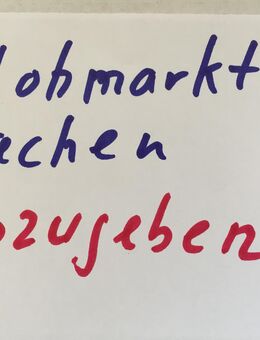 lohmarkt
achen
bzugeben